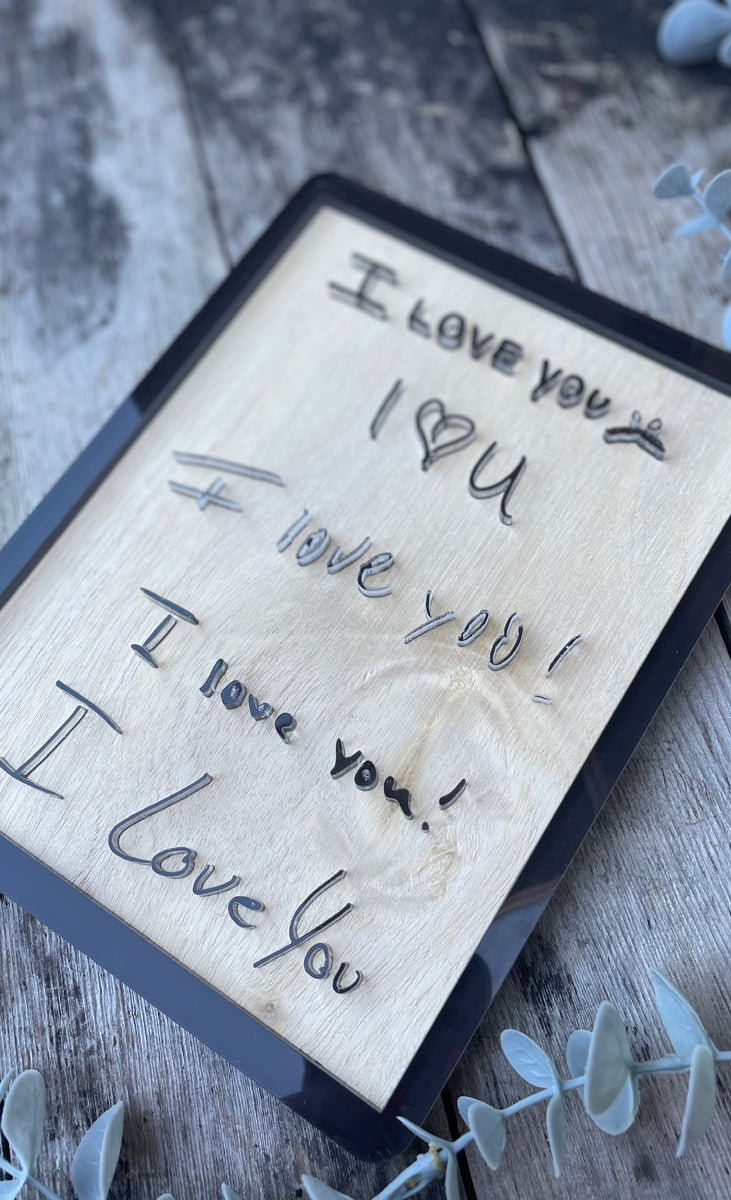 I LOVE YOU
I ♥ U
I love you!
I love you!
I Love You